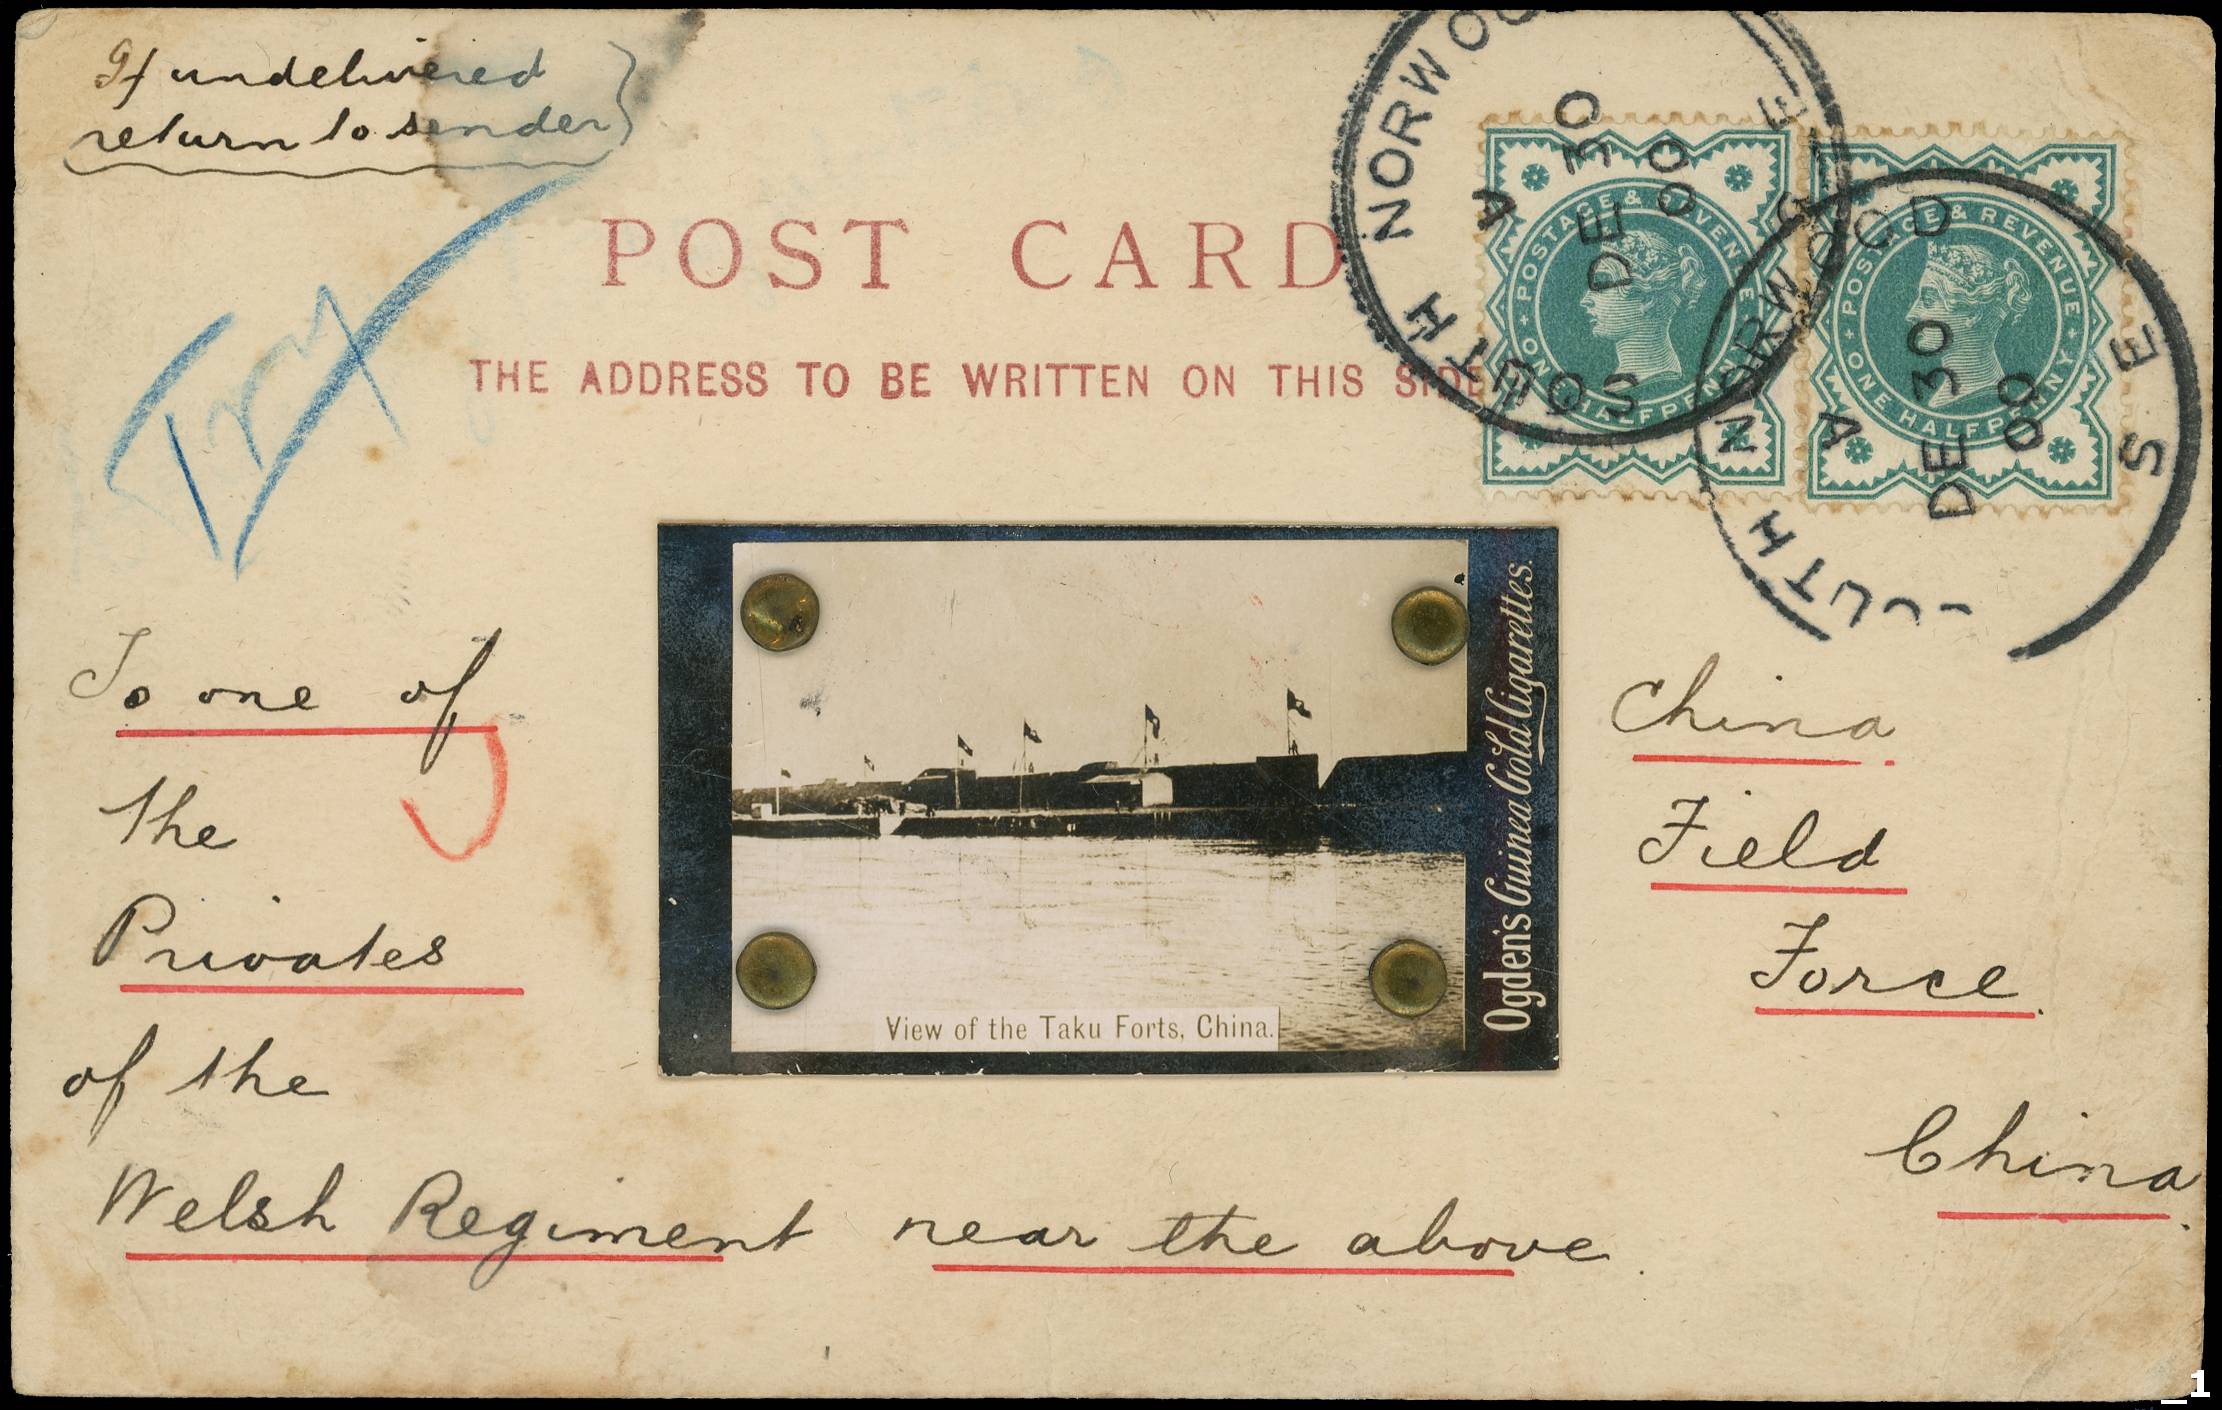 If undelivered
return to sender
POST CARD
THE ADDRESS TO BE WRITTEN ON THIS SIDE
Try
SOUTH NORWOOD S E
A
DE 30
00
POSTAGE & REVENUE
ONE HALFPENNY
UTH NORWOOD S E
A
DE 30
00
POSTAGE & REVENUE
ONE HALFPENNY
To one of
the
Privates
of the
Welsh Regiment near the above.
View of the Taku Forts, China.
Ogden's Guinea Gold Cigarettes.
China.
Field
Force.
China.
1